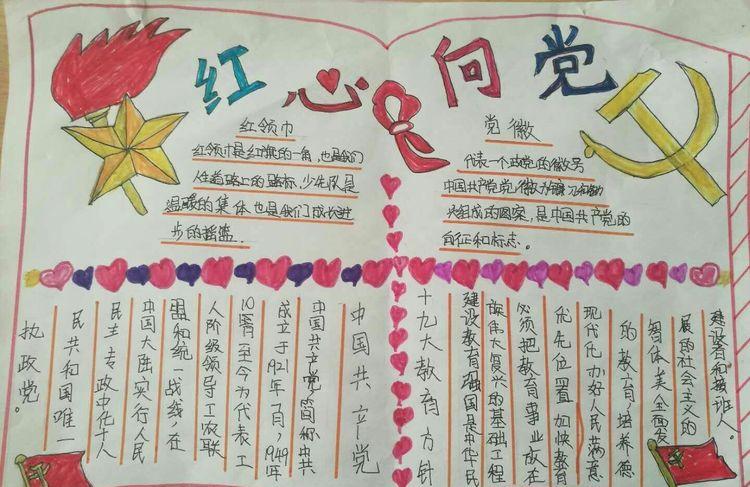 红心向党
红领巾
红领巾是红旗的一角，也是我们
人生道路上的路标，少先队是
温暖的集体也是我们成长进
步的摇篮。
党徽
代表一个政党的徽号
中国共产党党徽为镰刀和
组成的图案，是中国共产党的
象征和标志。
中国共产党
中国共产党，简称中共
成立于1921年7月，1949年
10月至今为代表工
人阶级领导工农联
盟和统一战线，在
中国大陆实行人民
民主专政中华人
民共和国唯一
执政党。
十九大教育方针
建设教育强国是中华民
族伟大复兴的基础工程
必须把教育事业放在
优先位置 加快教育
现代化办好人民满意
的教育 培养德
智体美全面发
展的社会主义的
建设者和接班人。